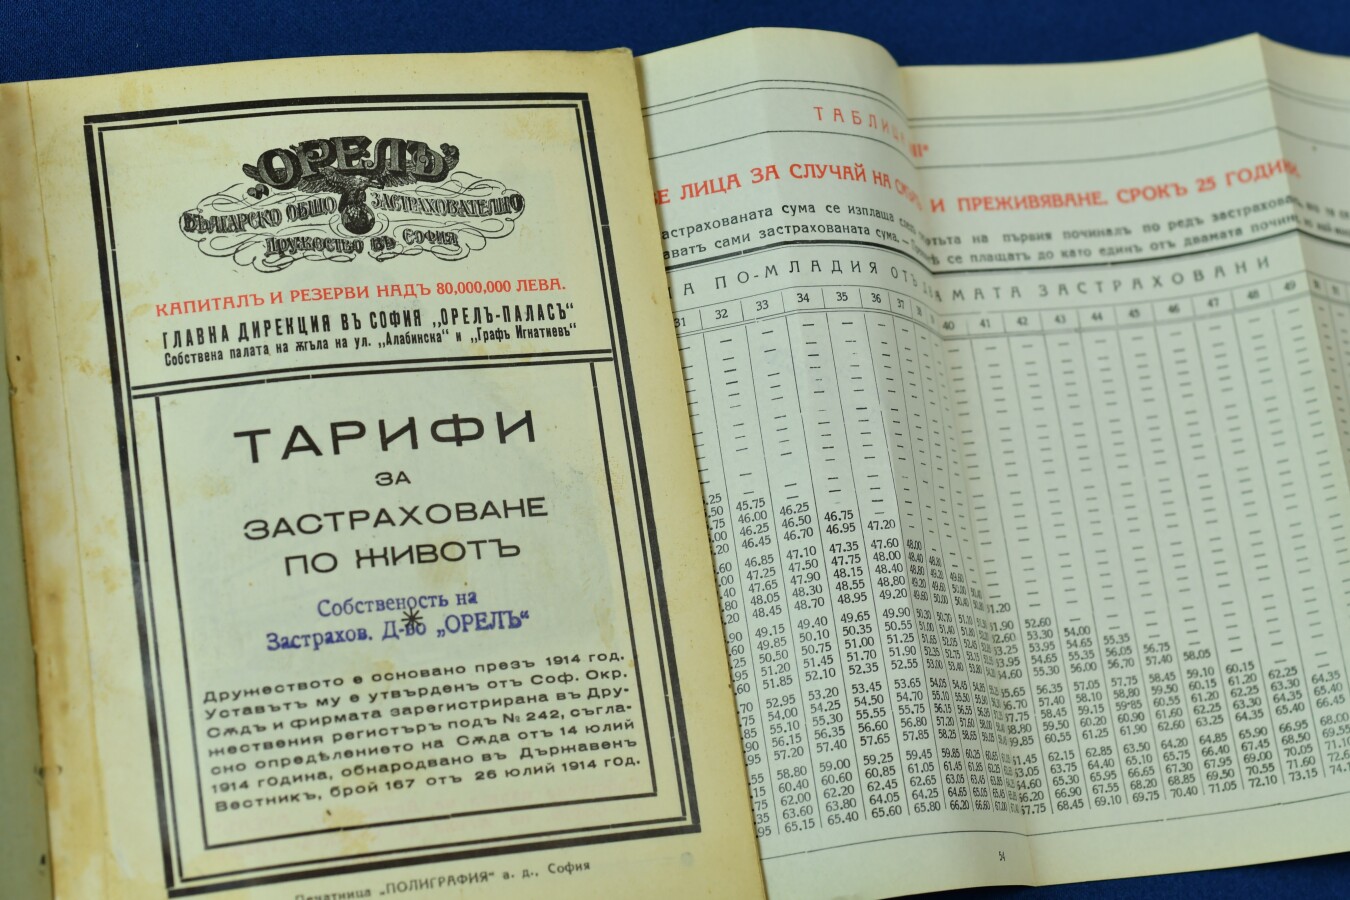 „ОРЕЛЪ“
БЪЛГАРСКО ОБЩО ЗАСТРАХОВАТЕЛНО
ДРУЖЕСТВО ВЪ СОФИЯ
КАПИТАЛЪ И РЕЗЕРВИ НАДЪ 80,000,000 ЛЕВА.
ГЛАВНА ДИРЕКЦИЯ ВЪ СОФИЯ „ОРЕЛЪ-ПАЛАСЪ“
Собствена палата на жгъла на ул. „Алабинска“ и „Графъ Игнатиевъ“
ТАРИФИ
ЗА
ЗАСТРАХОВАНЕ
ПО ЖИВОТЪ
Собственость на
Застрахов. Д-во „ОРЕЛЪ“
Дружеството е основано презъ 1914 год.
Уставътъ му е утвърденъ отъ Соф. Окр.
Сѫдъ и фирмата зарегистрирана въ Дру-
жествения регистъръ подъ № 242, съгла-
сно опредѣлението на Сѫда отъ 14 юлий
1914 година, обнародвано въ Държавенъ
Вестникъ, брой 167 отъ 26 юлий 1914 год.
Печатница „ПОЛИГРАФИЯ“ а. д., София
ТАБЛИЦА
ЛИЦА ЗА СЛУЧАЙ НА И ПРЕЖИВЯВАНЕ. СРОКЪ 25 ГОДИНИ
сума се изплаща на първия починалъ по редъ
сами застрахованата сума. се плащатъ до като единъ отъ двамата
НА ПО-МЛАДИЯ ОТЪ ДВАМАТА ЗАСТРАХОВАНИ
31 32 33 34 35 36 37 40 41 42 43 44 45 46 47 48 49
45.75
46.00 46.25
46.25 46.50 46.75
46.45 46.70 46.95 47.20
46.85 47.10 47.35 47.60 48.00
47.25 47.50 47.75 48.00 48.40
47.65 47.90 48.15 48.40 48.80
48.05 48.30 48.55 48.80 49.20
48.45 48.70 48.95 49.20 49.60
49.15 49.40 49.65 49.90 52.60
49.85 50.10 50.35 50.55 53.30 54.00
50.50 50.75 51.00 51.25 53.95 54.65 55.35
51.20 51.45 51.70 51.90 54.65 55.35 56.05 56.75
51.85 52.10 52.35 52.55 55.30 56.00 56.70 57.40 58.05
52.95 53.20 53.45 53.65 56.35 57.05 57.75 58.45 59.10 60.15
54.00 54.25 54.50 54.70 57.40 58.10 58.80 59.50 60.15 61.20 62.25
55.10 55.30 55.55 55.75 58.45 59.15 59.85 60.55 61.20 62.25 63.30 64.35
56.15 56.35 56.60 56.80 59.50 60.20 60.90 61.60 62.25 63.30 64.35 65.40
57.20 57.40 57.65 57.85 60.55 61.25 61.90 62.60 63.25 64.35 65.40 66.45
58.80 59.00 59.25 59.45 62.15 62.85 63.50 64.20 64.85 65.90 66.95 68.00
60.40 60.60 60.85 61.05 63.75 64.40 65.10 65.75 66.40 67.45 68.50 69.55
62.00 62.20 62.45 62.65 65.30 65.95 66.65 67.30 67.95 69.00 70.05
63.60 63.80 64.05 64.25 66.90 67.55 68.20 68.85 69.50 70.55 71.60
65.15 65.40 65.60 65.80 68.45 69.10 69.75 70.40 71.05 72.10 73.15
54